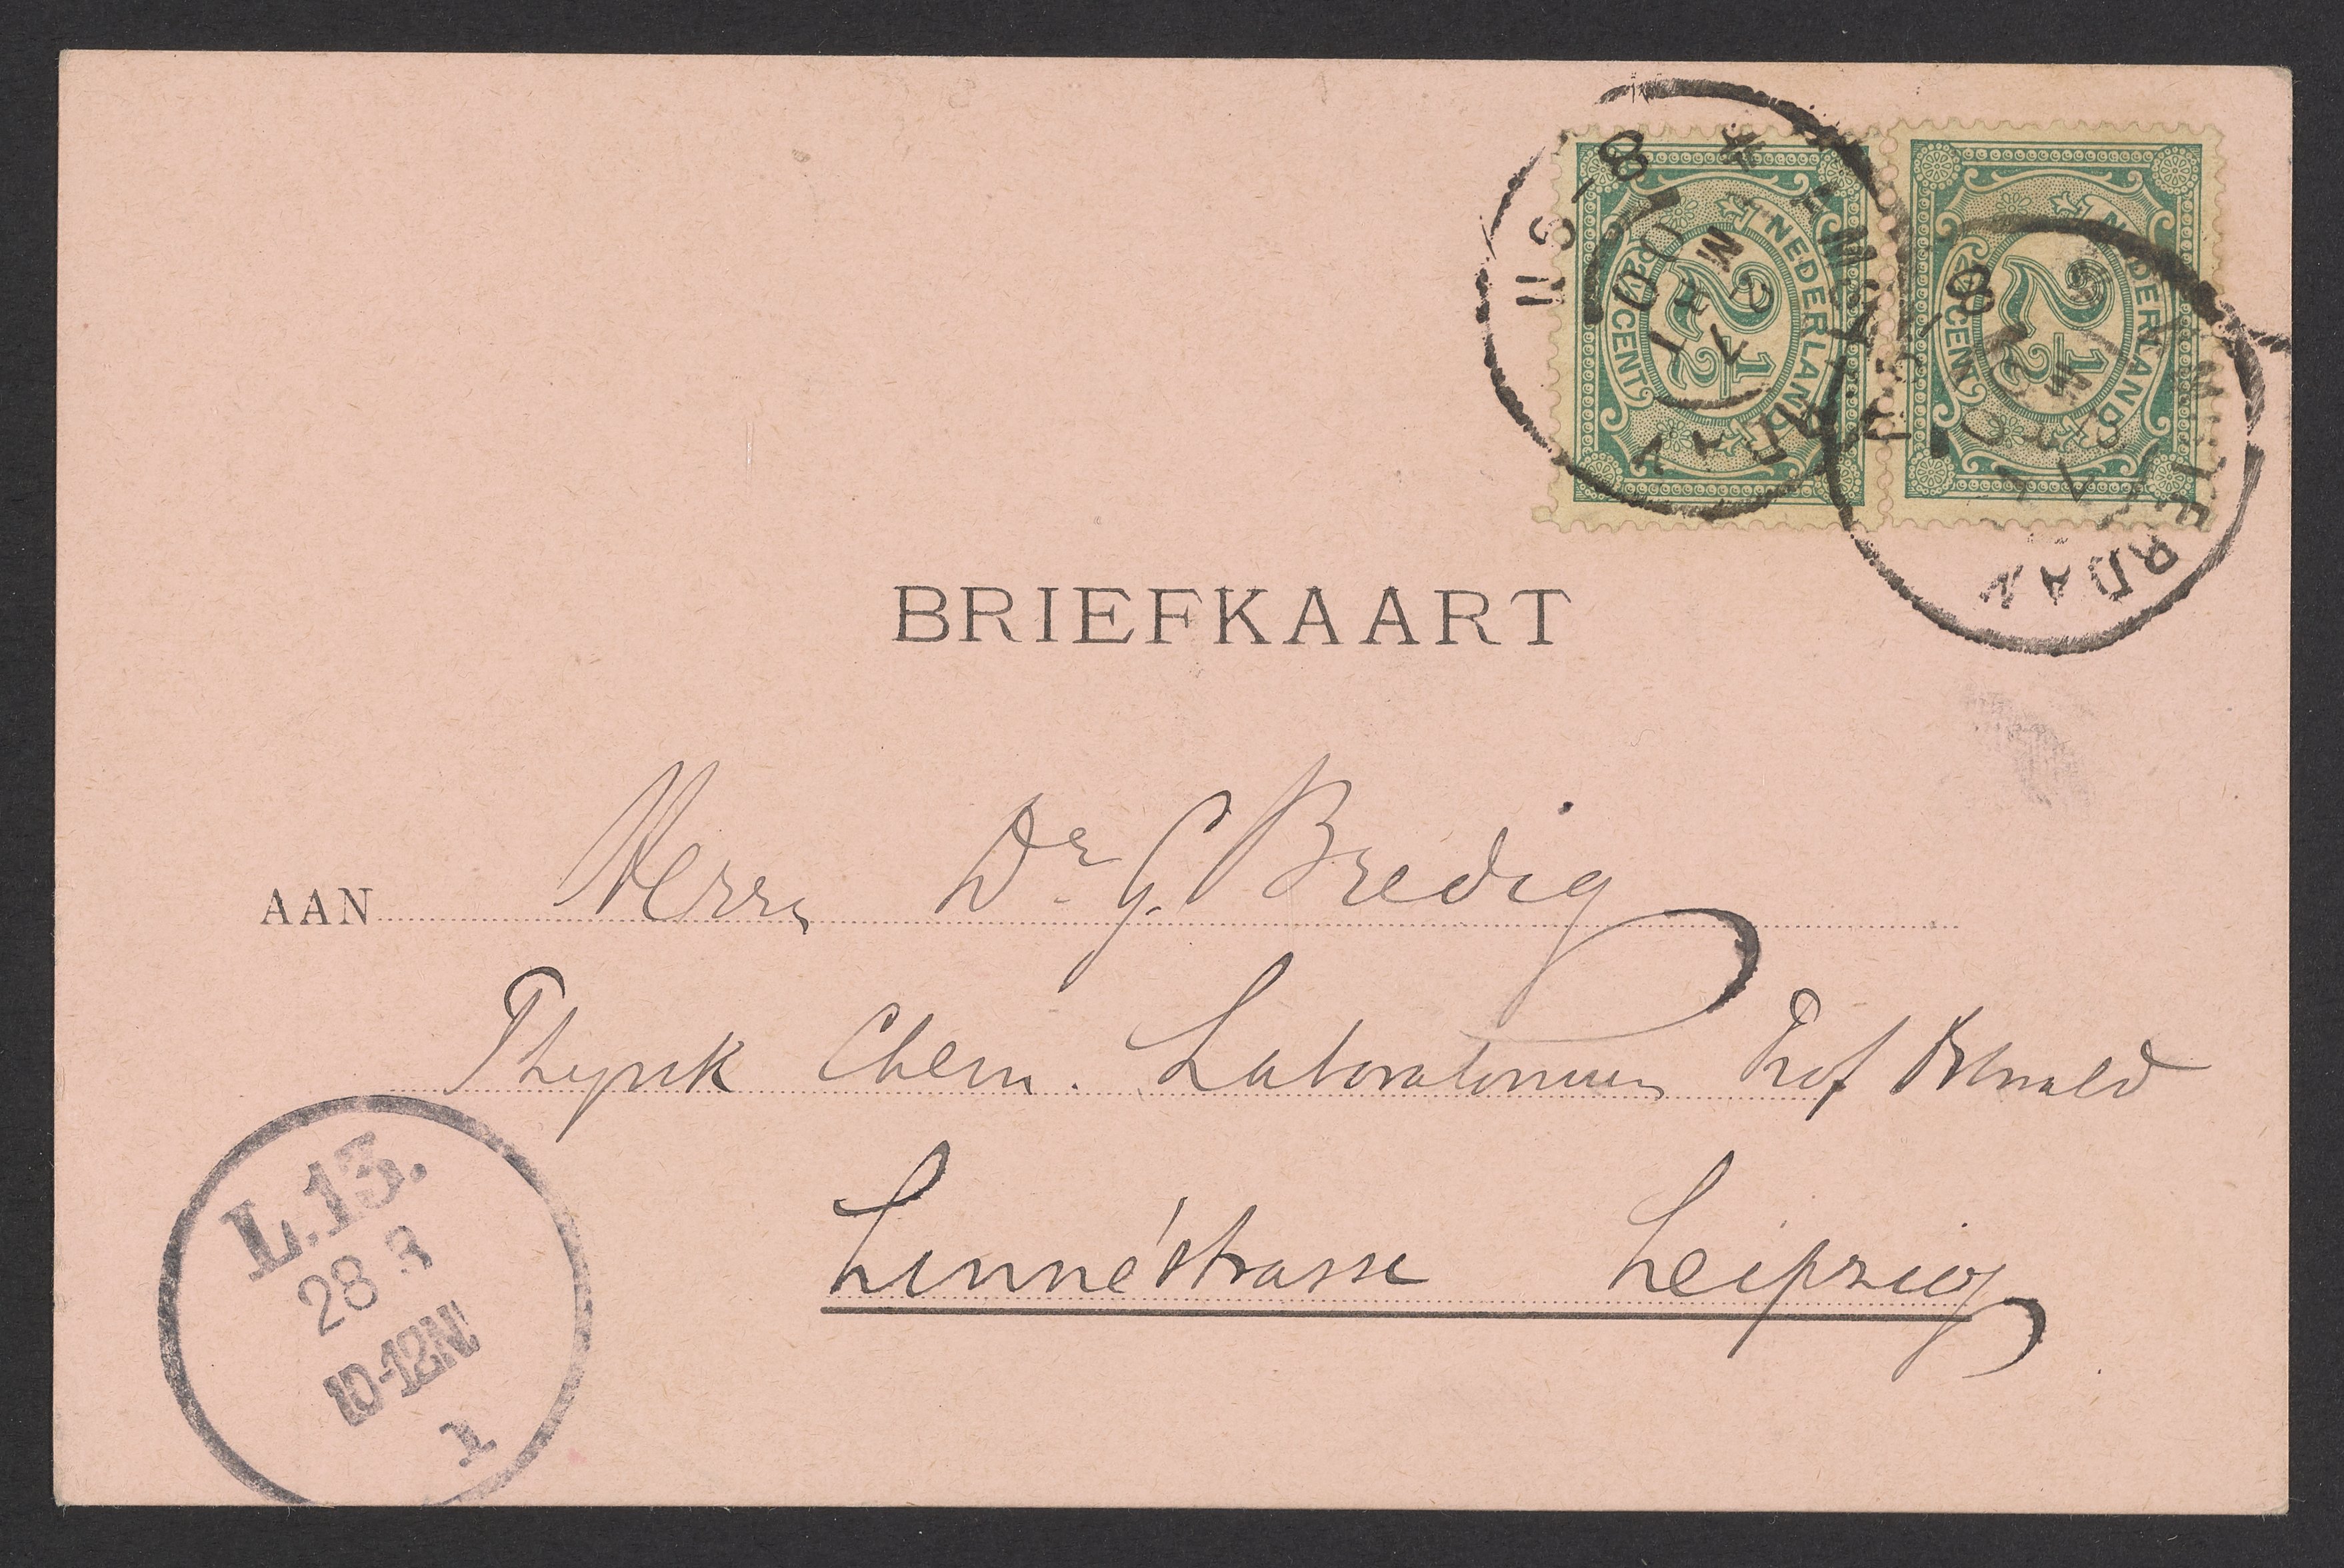 NEDERLAND
2½
2½ CENT
NEDERLAND
2½
2½ CENT
AMSTERDAM
8-9N
BRIEFKAART
AAN Herrn Dr. G. Bredig
Physik Chem. Laboratorium Prof Ostwald
Linnéstrasse Leipzig
L.13.
28 3
10-12N
1